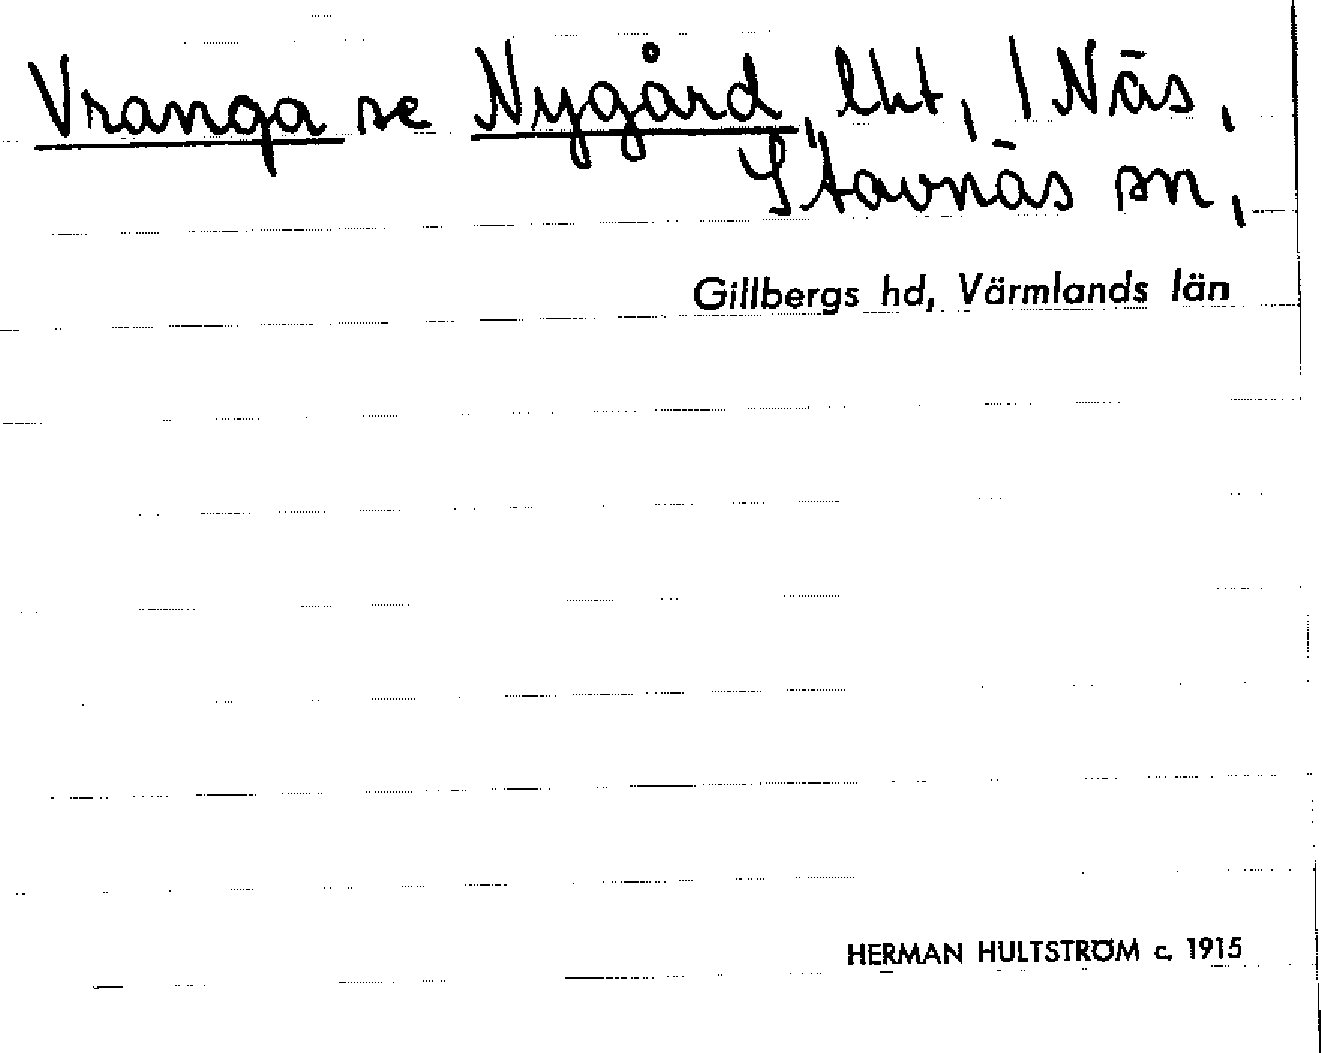 Vranga se Nygård, lht, 1 Näs,
Stavnäs sn,
Gillbergs hd, Värmlands län
HERMAN HULTSTRÖM c. 1915